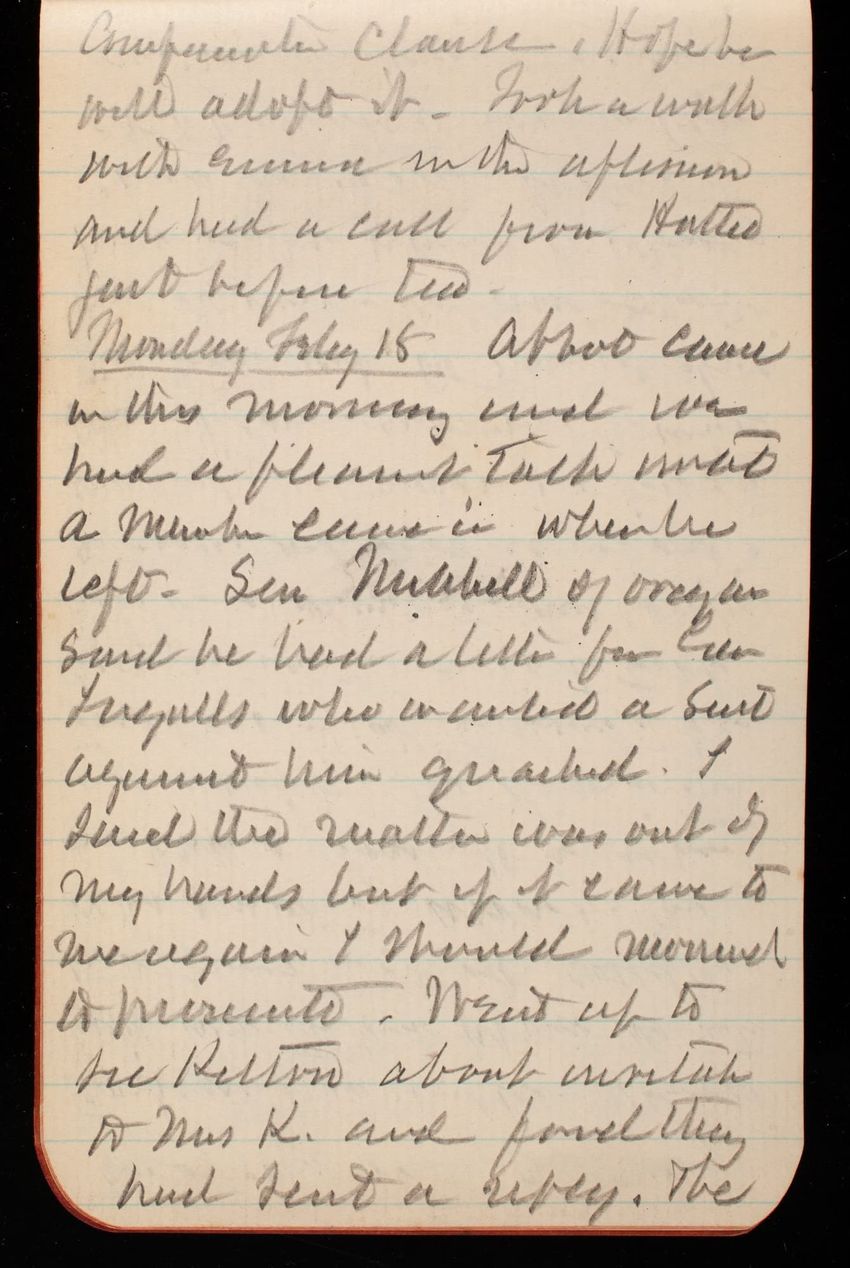 Compensation Clause. Hope he
will adopt it - Took a walk
with Emma in the afternoon
and had a call from Hatted
just before tea -
Monday Feby 18 Abbot came
in this morning and we
had a pleasant talk until
a Member came in when he
left - Sen Mitchell of Oregon
said he had a letter from Gen
Ingalls who wanted a Suit
against him quashed. I
said the matter was out of
my hands but if it came to
me again I should
to prosecute. Went up to
see Kelton about invitation
to Mrs K. and found they
had sent a reply. The